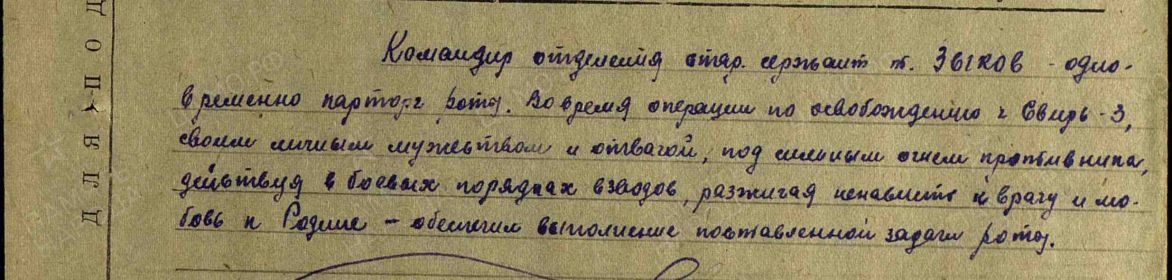 Командир отделения стар. сержант т. Зыков - одно-
временно парторг роты. Во время операции по освобождению г Свирь-3,
своим личным мужеством и отвагой, под сильным огнем противника,
действуя в боевых порядках взводов, разжигая ненависть к врагу и лю-
бовь к Родине - обеспечил выполнение поставленной задачи роты.
ДЛЯ ПОД